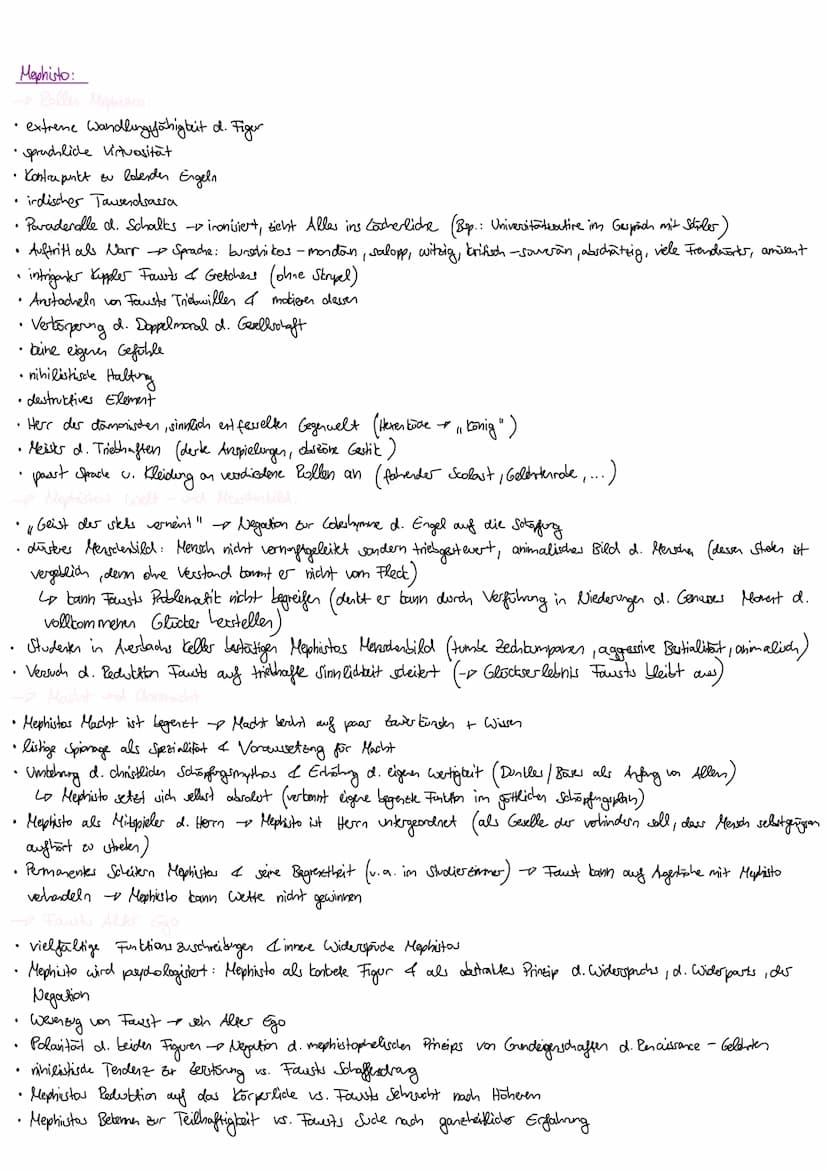 Mephisto:
→ Rollen Mephistos
• extreme Wandlungsfähigkeit d. Figur
• sprachliche Virtuosität
• Kontrapunkt zu lobenden Engeln
• irdischer Tausendsassa
• Paraderolle d. Schalks → ironisiert, zieht Alles ins Lächerliche (Bsp.: Universitätssatire im Gespräch mit Schüler)
• Auftritt als Narr → Sprache: burschikos-mondän, salopp, witzig, kritisch-souverän, abschätzig, viele Fremdwörter, amüsant
• intriganter Kuppler Fausts & Gretchens (ohne Skrupel)
• Anstacheln von Fausts Triebwillen & dessen
• Verkörperung d. Doppelmoral d. Gesellschaft
• keine eigenen Gefühle
• nihilistische Haltung
• destruktives Element
• Herr der dämonischen, sinnlich entfesselten Gegenwelt (Hexenküche → „König")
• Meister d. Triebhaften (derbe Anspielungen, obszöne Gestik)
• passt Sprache u. Kleidung an verschiedene Rollen an (fahrender Scolast, Gelehrtenrobe, ...)
→ Mephistos Welt- und Menschenbild:
• „Geist der stets verneint" → Negation zur Lobeshymne d. Engel auf die Schöpfung
• düstres Menschenbild: Mensch nicht vernunftgeleitet sondern triebgesteuert, animalisches Bild d. Menschen (dessen Streben ist
vergeblich, denn ohne Verstand kommt er nicht vom Fleck)
↳ kann Fausts Problematik nicht begreifen (denkt er kann durch Verführung in Niederungen d. Genusses Moment d.
vollkommenen Glückes herstellen)
• Studenten in Auerbachs Keller bestätigen Mephistos Menschenbild (tumbe Zechkumpanen, aggressive Bestialität, animalisch)
• Versuch d. Reduktion Fausts auf triebhafte Sinnlichkeit scheitert (→ Glückserlebnis Fausts bleibt aus)
→ Macht und Ohnmacht
• Mephistos Macht ist begrenzt → Macht beruht auf paar Zauberkünsten + Wissen
• listige Spionage als Spezialität & Voraussetzung für Macht
• Umkehrung d. christlichen Schöpfungsmythos & Erhöhung d. eigenen Wertigkeit (Dunkles/Böses als Anfang von Allem)
↳ Mephisto setzt sich selbst absolut (verkennt eigene begrenzte Funktion im göttlichen Schöpfungsplan)
• Mephisto als Mitspieler d. Herrn → Mephisto ist Herrn untergeordnet (als Geselle der verhindern soll, dass Mensch selbstgenügsam
aufhört zu streben)
• Permanentes Scheitern Mephistos & seine Begrenztheit (v.a. im Studierzimmer) → Faust kann auf Augenhöhe mit Mephisto
verhandeln → Mephisto kann Wette nicht gewinnen
→ Fausts Alter Ego
• vielfältige Funktionszuschreibungen & innere Widersprüche Mephistos
• Mephisto wird psychologisiert: Mephisto als konkrete Figur & als abstraktes Prinzip d. Widerspruchs, d. Widerparts, der
Negation
• Wesenszug von Faust → sein Alter Ego
• Polarität d. beiden Figuren → Negation d. mephistophelischen Prinzips von Grundeigenschaften d. Renaissance-Gelehrten
• nihilistische Tendenz zur Zerstörung vs. Fausts Schaffensdrang
• Mephistos Reduktion auf das Körperliche vs. Fausts Sehnsucht nach Höherem
• Mephistos Bekennen zur Teilhaftigkeit vs. Fausts Suche nach ganzheitlicher Erfahrung